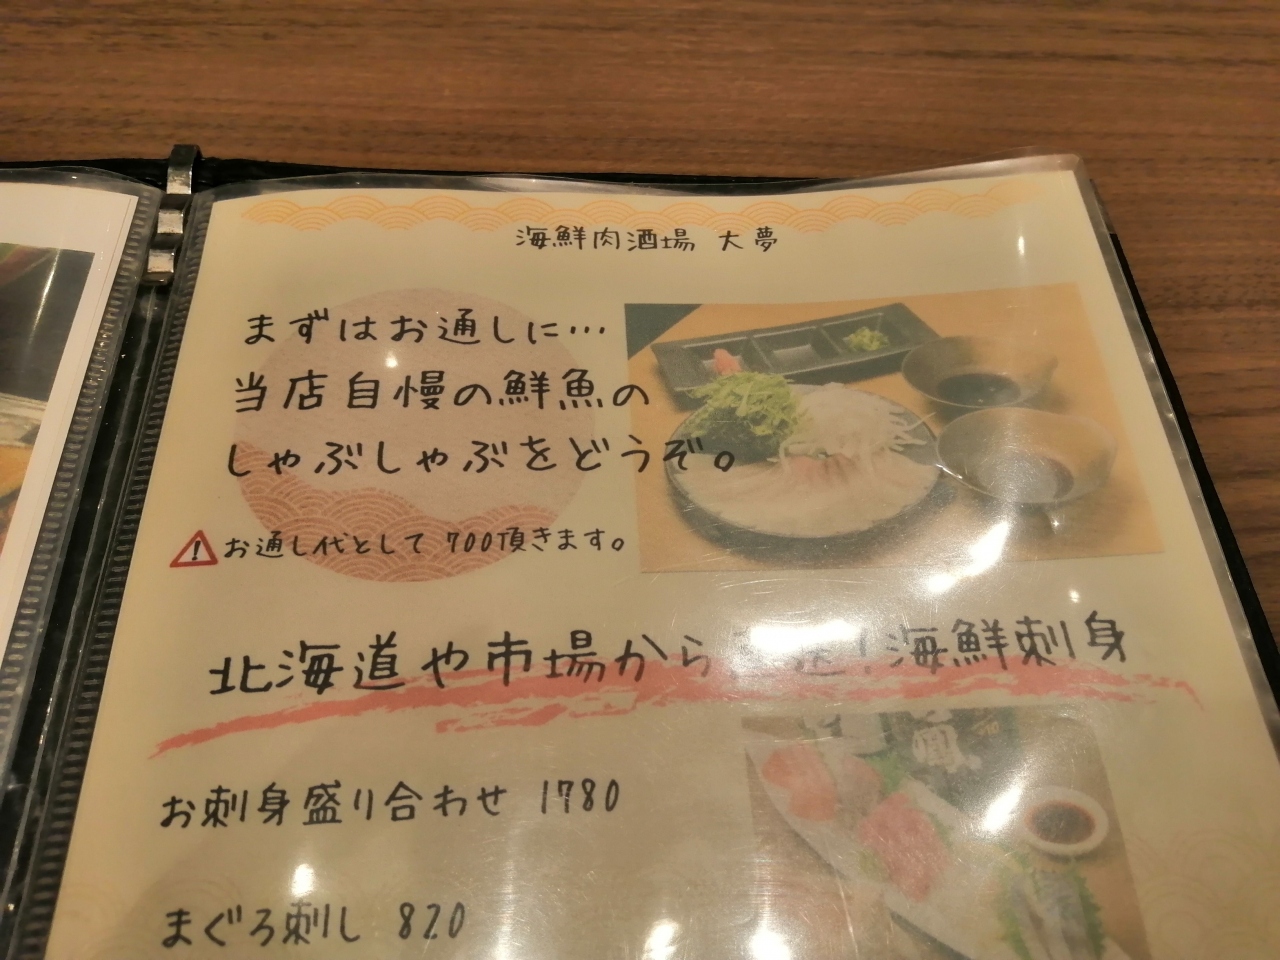 海鮮肉酒場 大夢
まずはお通しに…
当店自慢の鮮魚の
しゃぶしゃぶをどうぞ。
お通し代として 700頂きます。
北海道や市場から 送!海鮮刺身
お刺身盛り合わせ 1780
まぐろ刺し 820